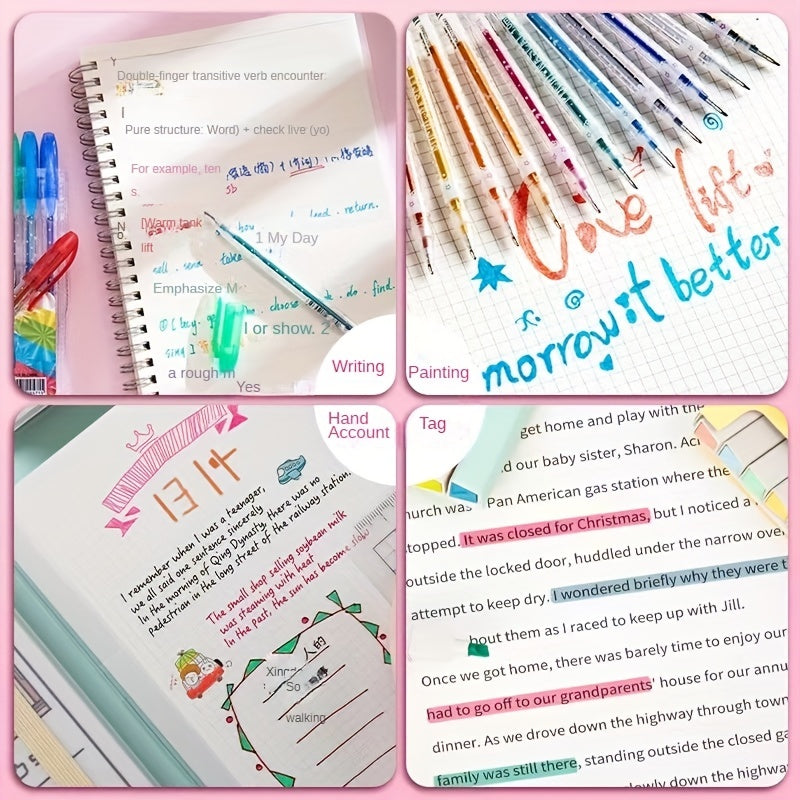 Double-finger transitive verb encounter:
Pure structure: Word) + check live (yo)
For example, ten
s.
[Warm tank
lift
No
1 My Day
how
lend . return.
sell . send take
Emphasize M
choose
do . find.
I or show. 2
sing ]
a rough m
Yes
Writing
Love list.
morrow it better
Painting
Hand
Account
I remember when I was a teenager,
we all said one sentence sincerely
In the morning of Qing Dynasty, there was no
pedestrian in the long street of the railway station.
The small shop selling soybean milk
was steaming with heat
In the past, the sun has become slow
人的
So
walking
Tag
get home and play with the
d our baby sister, Sharon.
hurch was Pan American gas station where the
topped. It was closed for Christmas, but I noticed a
outside the locked door, huddled under the narrow over
attempt to keep dry. I wondered briefly why they were t
bout them as I raced to keep up with Jill.
Once we got home, there was barely time to enjoy our
had to go off to our grandparents' house for our annu
dinner. As we drove down the highway through town
family was still there, standing outside the closed ga
slowly down the highway